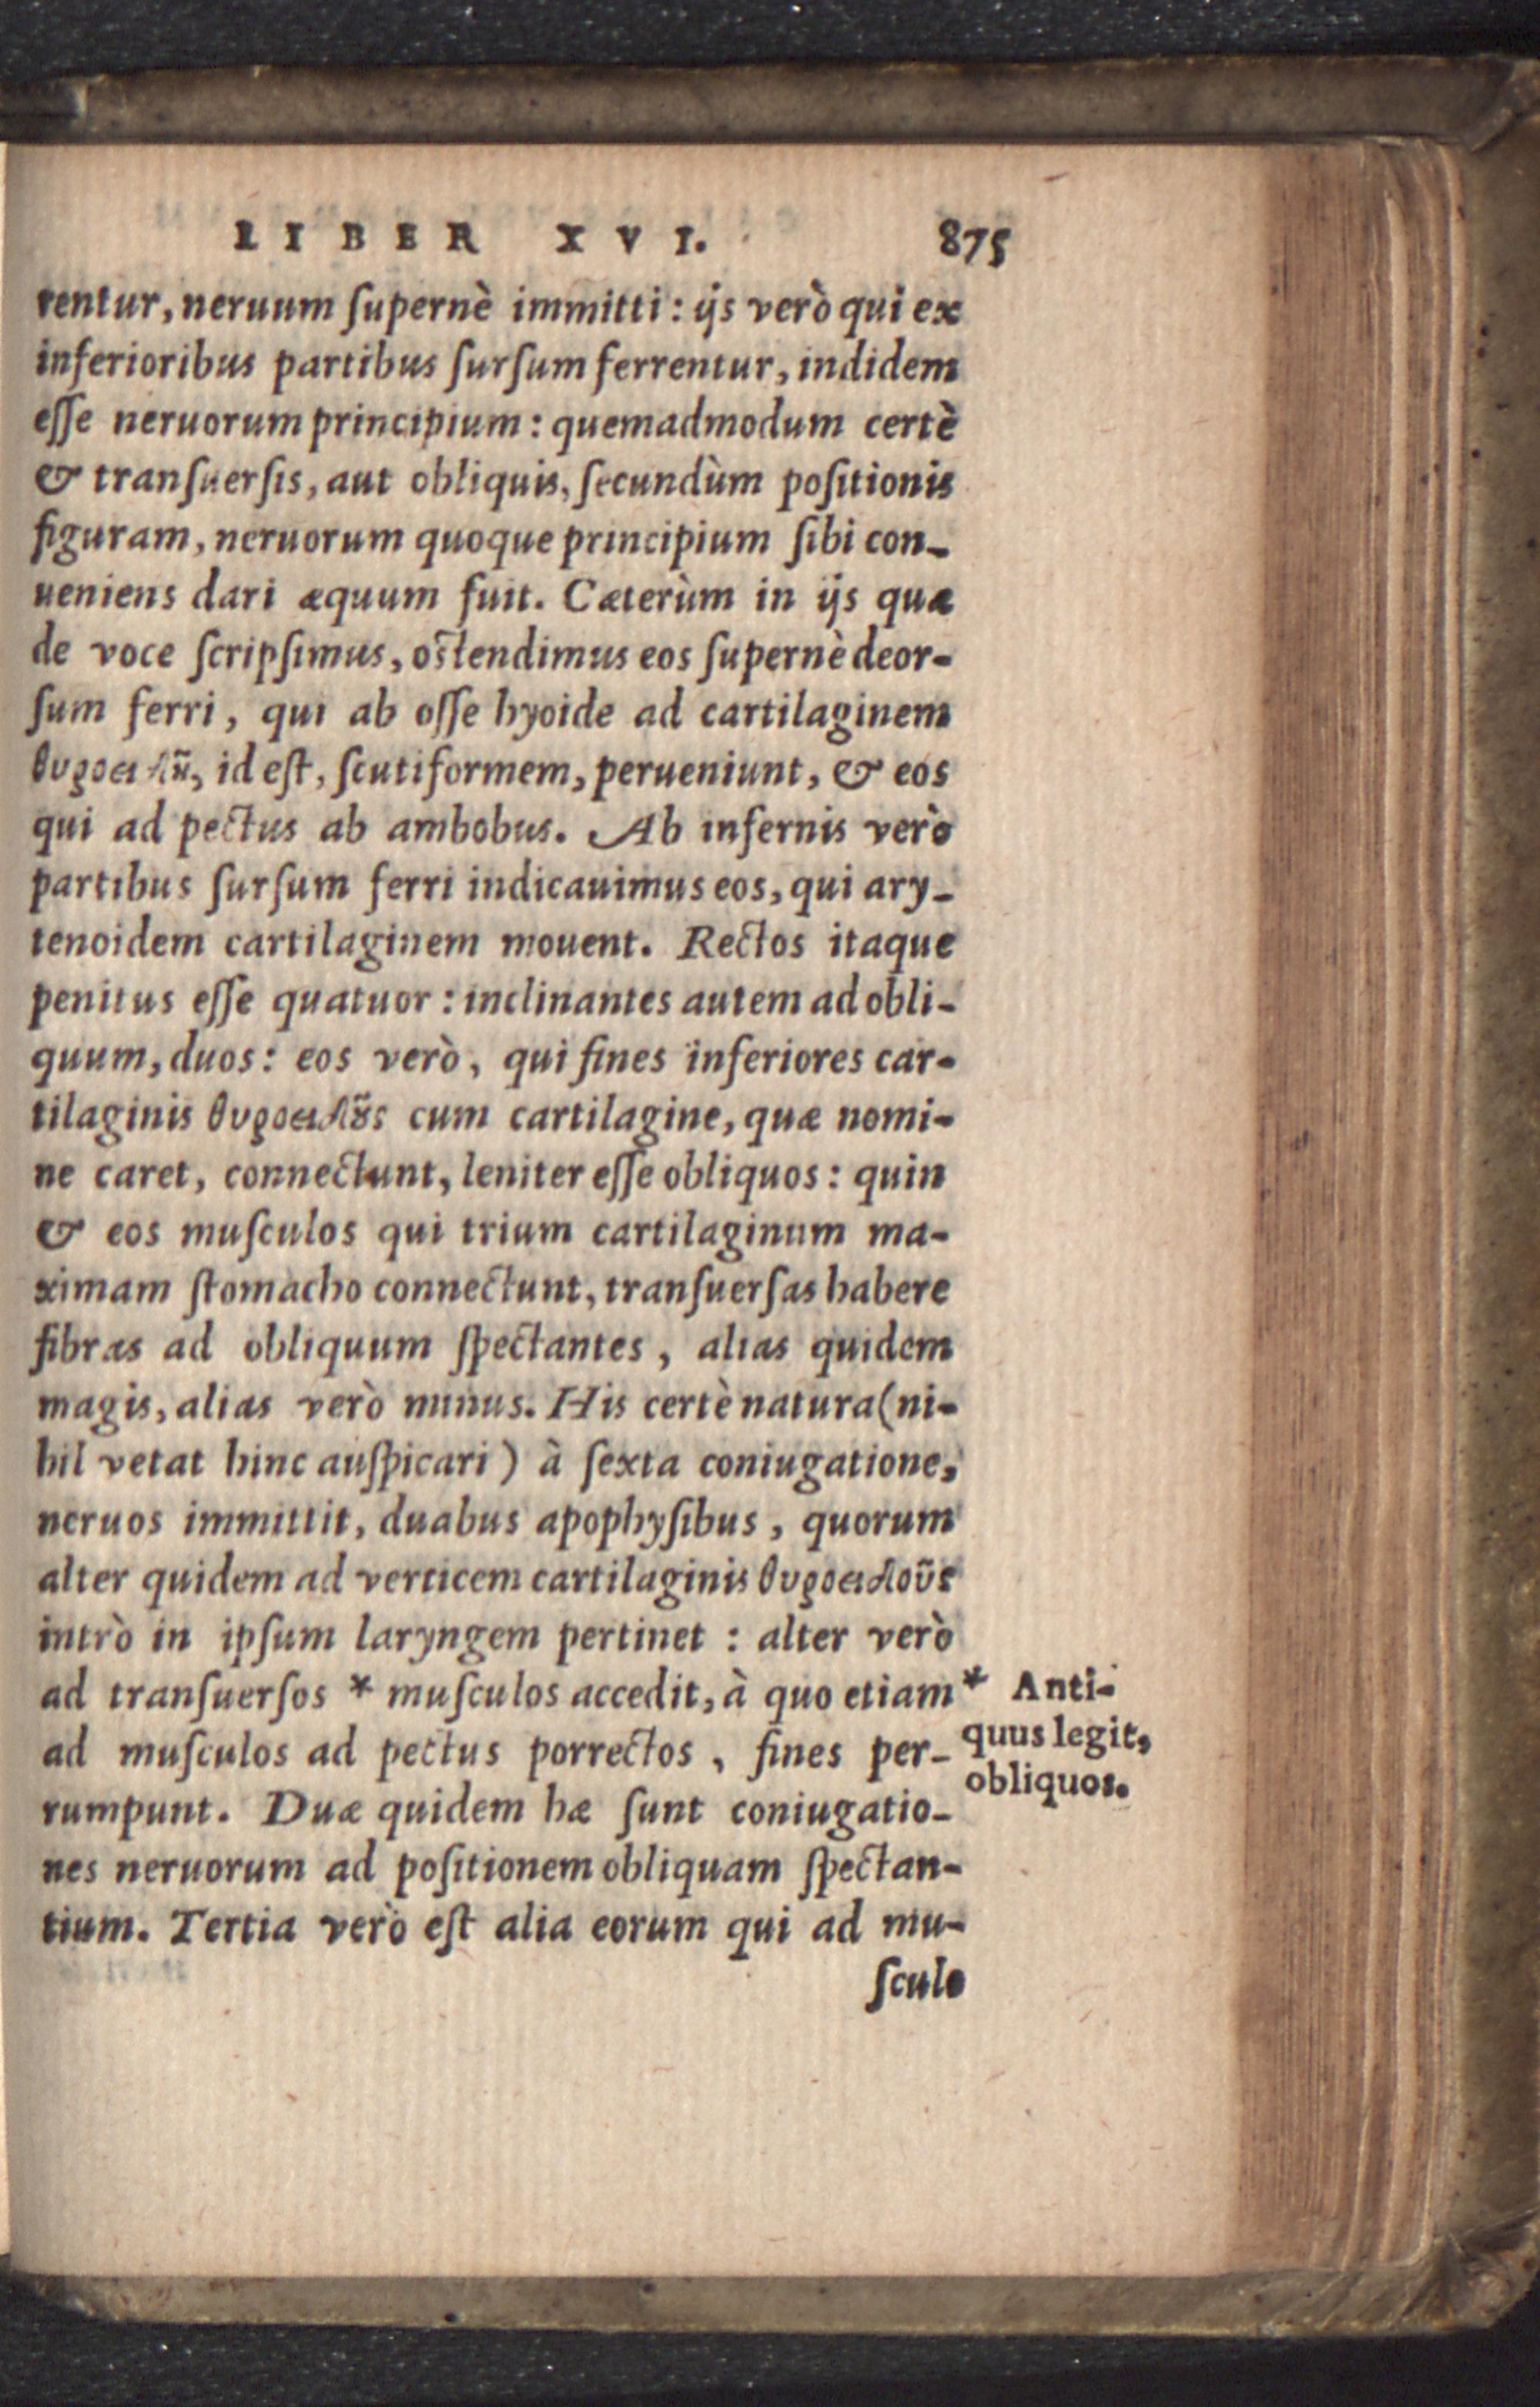 LIBER XVI. 875
rentur, neruum ſupernè immitti: ijs verò qui ex
inferioribus partibus ſurſum ferrentur, indidem
eſſe neruorum principium: quemadmodum certè
& tranſuerſis, aut obliquis, ſecundùm poſitionis
figuram, neruorum quoque principium ſibi con-
ueniens dari æquum fuit. Cæterùm in ijs quæ
de voce ſcripſimus, oſtendimus eos ſupernè deor-
ſum ferri, qui ab oſſe hyoide ad cartilaginem
θυροειδῆ, id eſt, ſcutiformem, perueniunt, & eos
qui ad pectus ab ambobus. Ab infernis verò
partibus ſurſum ferri indicauimus eos, qui ary-
tenoidem cartilaginem mouent. Rectos itaque
penitus eſſe quatuor: inclinantes autem ad obli-
quum, duos: eos verò, qui fines inferiores car-
tilaginis θυροειδοῦς cum cartilagine, quæ nomi-
ne caret, connectunt, leniter eſſe obliquos: quin
& eos muſculos qui trium cartilaginum ma-
ximam ſtomacho connectunt, tranſuerſas habere
fibras ad obliquum ſpectantes, alias quidem
magis, alias verò minus. His certè natura (ni-
hil vetat hinc auſpicari) à ſexta coniugatione,
neruos immittit, duabus apophyſibus, quorum
alter quidem ad verticem cartilaginis θυροειδοῦς
intrò in ipſum laryngem pertinet: alter verò
ad tranſuerſos * muſculos accedit, à quo etiam
ad muſculos ad pectus porrectos, fines per-
rumpunt. Duæ quidem hæ ſunt coniugatio-
nes neruorum ad poſitionem obliquam ſpectan-
tium. Tertia verò eſt alia eorum qui ad mu-
ſculo
* Anti-
quus legit,
obliquos.